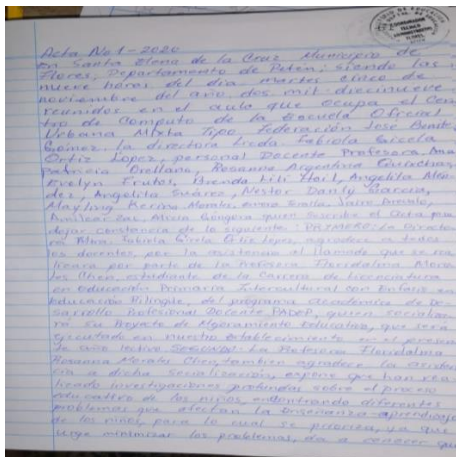 Acta No 1-2020
En Santa Elena de la Cruz Municipio de
Flores, Departamento de Petén; siendo las
nueve horas del día martes cinco de
noviembre del año, dos mil diecinueve
reunidos en el aula que ocupa el Cen
tro de Computo de la Escuela Oficial
Urbana Mixta Tipo Federación José Benito
Gómez. la directora Licda. Fabiola Gicela
Ortiz López, personal Docente Profesora Ana
Patricia Orellana, Rosanna Argentina
Evelyn Frutos, Brenda Lili Angelita
Angelita Suárez, Nestor Danly García,
Morales,
Amilcar quien suscribe el Acta para
dejar constancia de lo siguiente: PRIMERO: La Directo
ra Fabiola Gicela Ortiz López, agradece a todos
los docentes, por la asistencia al llamado que se rea
lizara por parte de la Profesora Floridalma
estudiante de la Carrera de Licenciatura
en Educación Primaria Intercultural con Énfasis en
Educación Bilingüe, del programa académico de De-
sarrollo Profesional Docente PADEP, quien socializa
rá su Proyecto de Mejoramiento Educativo, que será
ejecutado en nuestro establecimiento en el presen
te año lectivo SEGUNDO: La Profesora Floridalma
Rosanna Morales también agradece la asisten
cia a dicha socialización, expresa que han rea
lizado investigaciones profundas sobre el proceso
educativo de los niños, encontrando diferentes
problemas que afectan la enseñanza-aprendizaje
de los niños, para lo cual se prioriza, ya que
urge minimizar los problemas, da a conocer que